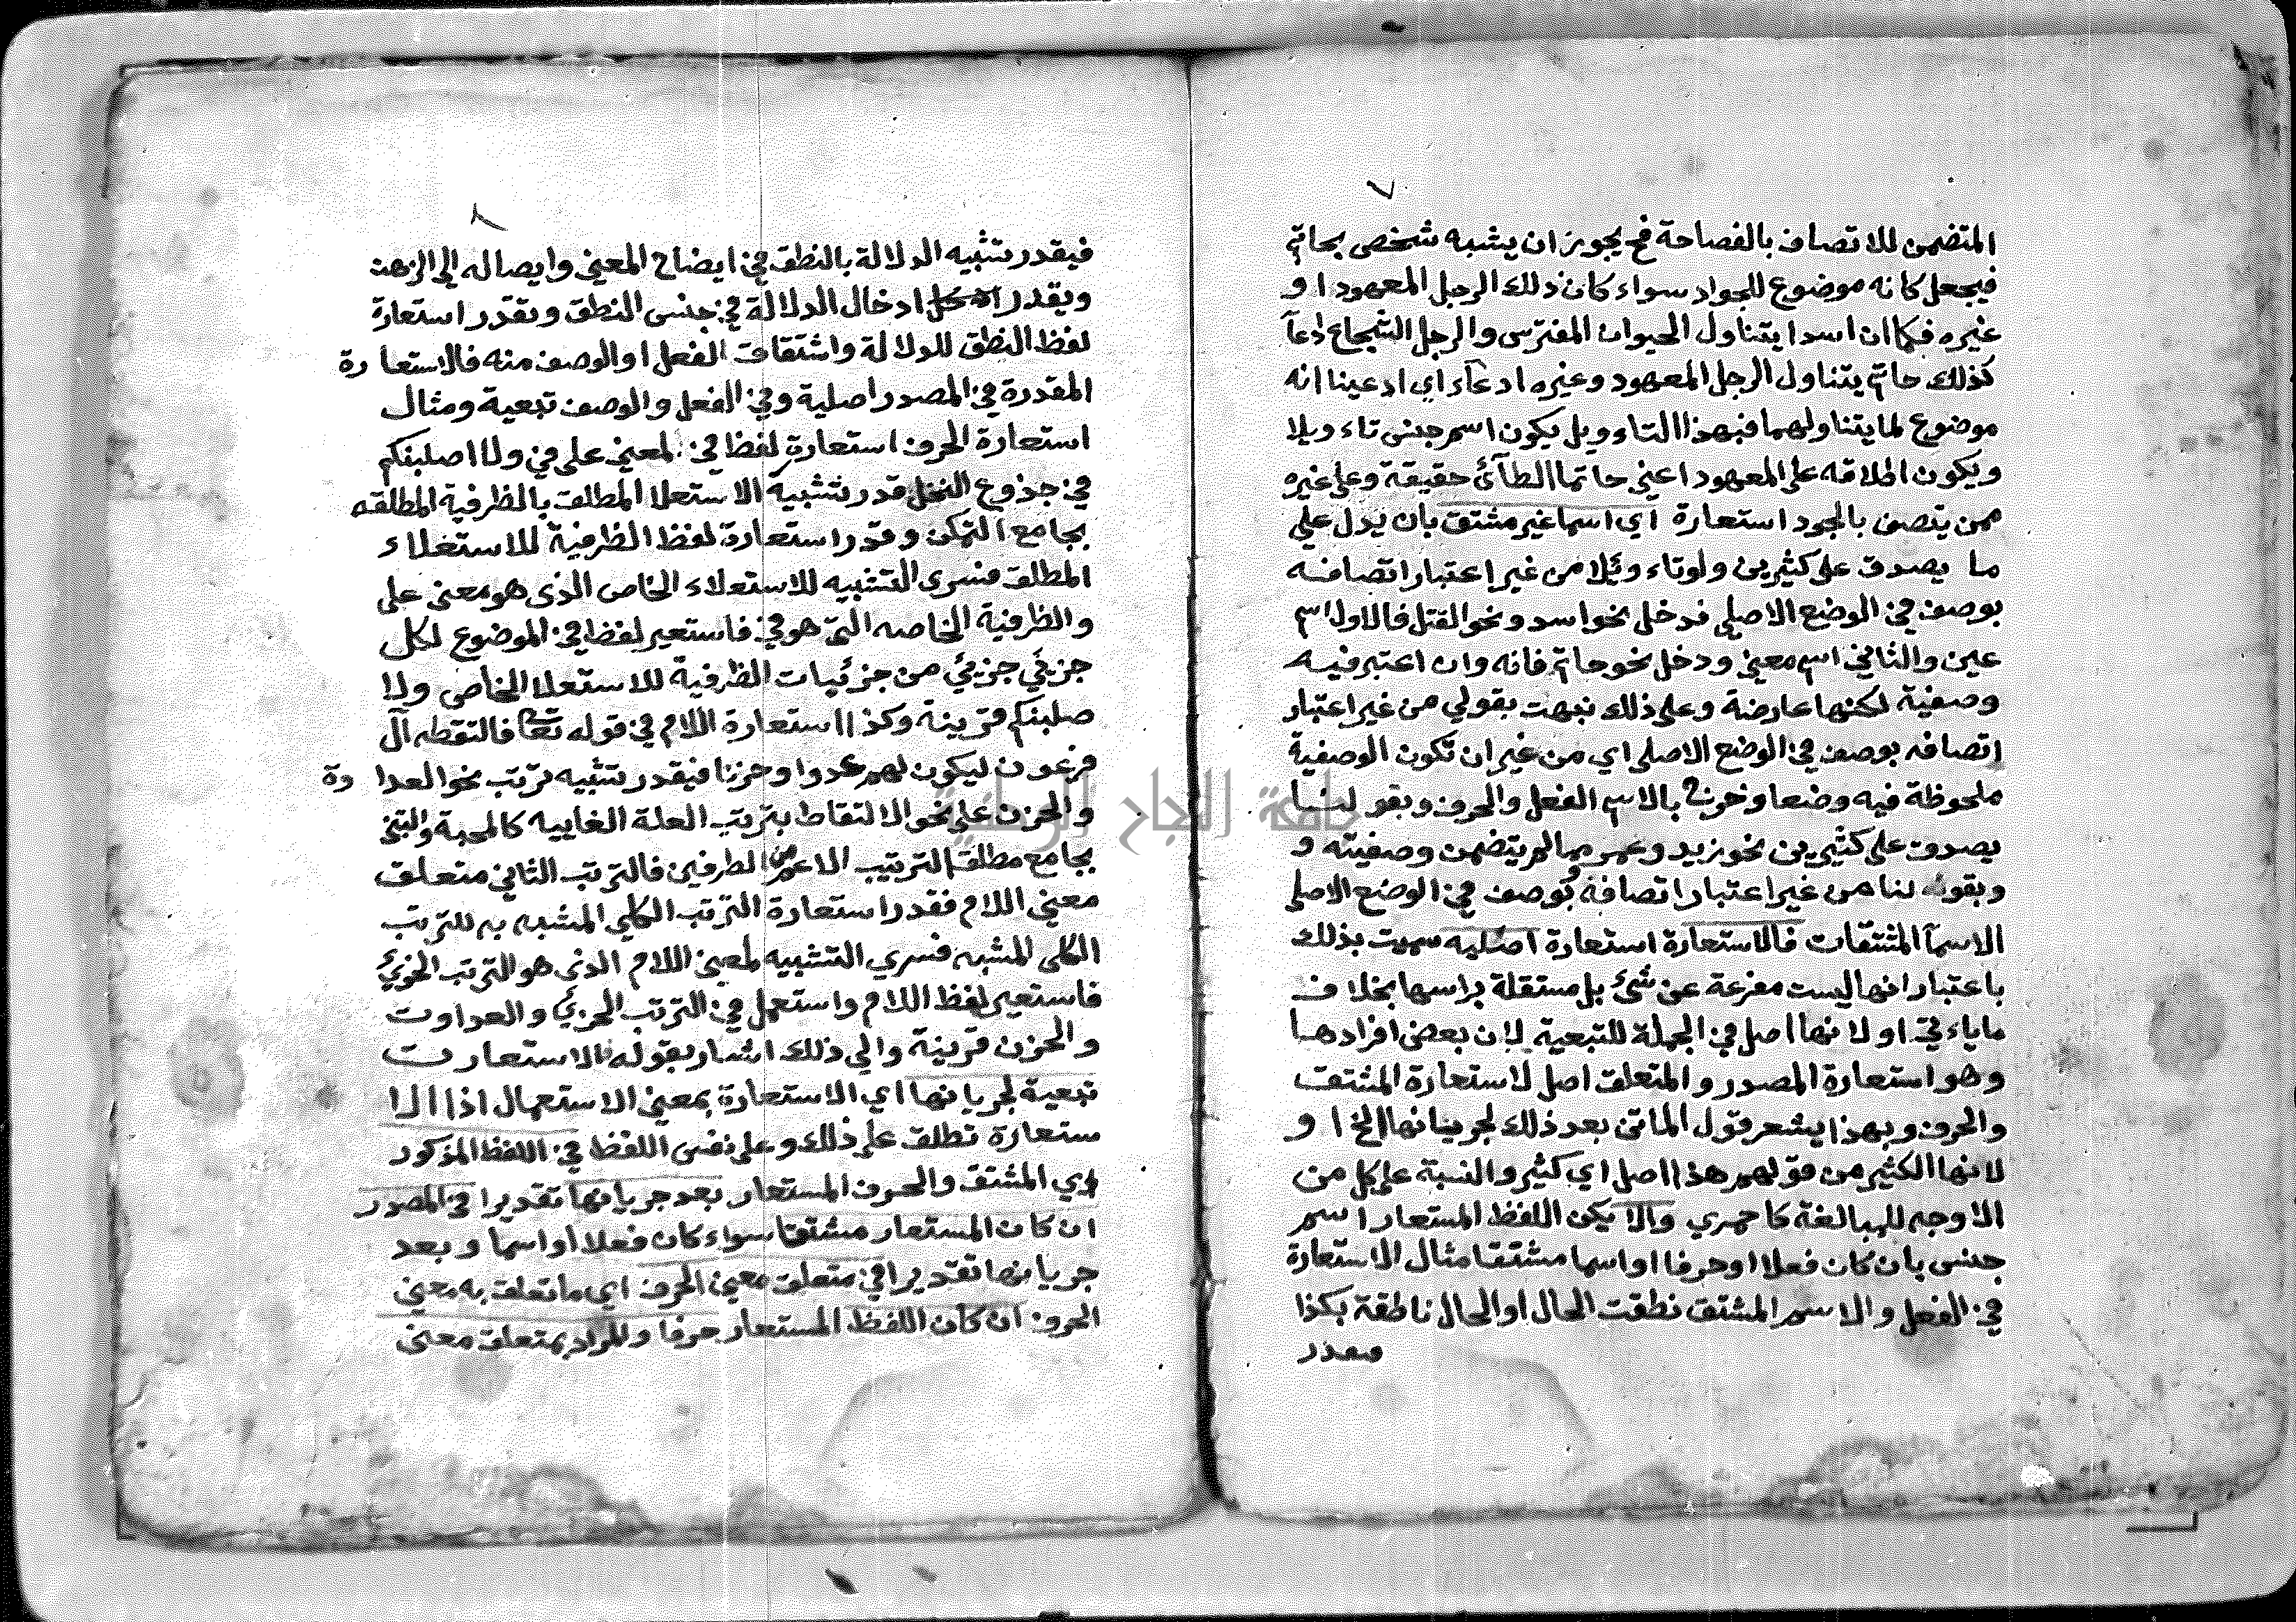 ٧
المتضمن للاتصاف بالفصاحة فح يجوز ان يشبه شخص بحاتم
فيجعل كانه موضوع للجواد سواء كان ذلك الرجل المعهود ا و
غيره فكما ان اسدا يتناول الحيوان المفترس والرجل الشجاع ادعآ
كذلك حاتم يتناول الرجل المعهود وغيره ادعآء اي ادعينا انه
موضوع لما يتناولهما فبهذا التاءويل يكون اسم جنس تاءويلا
ويكون اطلاقه على المعهود اعني حاتما الطآئ حقيقة وعلى غيره
ممن يتصف بالجود استعارة اي اسما غير مشتق بان يدل على
ما يصدق على كثيرين ولو تاءويلا من غير اعتبار اتصافه
بوصف في الوضع الاصلي فدخل نحو اسد ونحو القتل فالاول اسم
عين والثاني اسم معنى ودخل نحو حاتم فانه وان اعتبر فيه
وصفية لكنها عارضة وعلى ذلك نبهت بقولي من غير اعتبار
اتصافه بوصف في الوضع الاصلي اي من غير ان تكون الوصفية
ملحوظة فيه وضعا وخرج بالاسم الفعل والحرف وبقو لنا
يصدق على كثيرين نحو زيد وعمر مما لم يتضمن وصفيته و
وبقوله لنا من غير اعتبار اتصافه بوصف في الوضع الاصلي
الاسمآ المشتقات فالاستعارة استعارة اصليه سميت بذلك
باعتبار انها ليست مفرعة عن شئ بل مستقلة براسها بخلاف
ماياءتي او لانها اصل في الجملة للتبعية لان بعض افرادها
وهو استعارة المصدر والمتعلق اصل لاستعارة المشتق
والحرف وبهذا يشعر قول الماتن بعد ذلك لجريانها الخ ا و
لانها الكثير من قولهم هذا اصل اي كثير والنسبة على كل من
الاوجه للمبالغة كاحمري والا يكن اللفظ المستعار اسم
جنس بان كان فعلا او حرفا او اسما مشتقا مثال الاستعارة
في الفعل والاسم المشتق نطقت الحال او الحال ناطقة بكذا
٨
فيقدر تشبيه الدلالة بالنطق في ايضاح المعنى وايصاله الى الزهن
ويقدر ادخال الدلالة في جنس النطق ويقدر استعارة
لفظ النطق للدلالة واشتقاق الفعل او الوصف منه فالاستعا رة
المقدرة في المصدر اصلية وفي الفعل والوصف تبعية ومثال
استعارة الحرف استعارة لفظ في لمعنى على في ولا اصلبنكم
في جذوع النخل قدر تشبيه الاستعلا المطلق بالظرفية المطلقه
بجامع التمكن وقدر استعارة لفظ الظرفية للاستغلاء
المطلق فسرى التشبيه للاستعلاء الخاص الذى هو معنى على
والظرفية الخاصه التى هو في فاستعير لفظ في الموضوع لكل
جزئي جزئي من جزئيات الظرفية للاستعلا الخاص ولا
صلبنكم قرينة وكذا استعارة اللام في قوله تعا فالتقطه آل
فرعون ليكون لهم عدوا وحزنا فيقدر تشبيه ترتب نحو العدا وة
والحزن على نحو الالتقاط بترتب العلة الغاييه كالمحبة والتبنى
بجامع مطلق الترتيب الاعم من الطرفين فالترتب الثاني متعلق
معنى اللام فقدر استعارة الترتب الكلي المشبه به للترتب
الكلى المشبه فسري التشبيه لمعنى اللام الذى هو الترتب الجزئ
فاستعير لفظ اللام واستعمل في الترتب الجزئ والعداوت
والحزن قرينة والى ذلك اشار بقوله فالاستعارت
تبعية لجريانها اي الاستعارة بمعنى الاستعمال اذا الا
ستعارة تطلق على ذلك وعلى نفس اللفظ في اللفظ المذكور
اي المشتق والحرف المستعار بعد جريانها تقديرا في المصدر
ان كان المستعار مشتقا سواء كان فعلا او اسما وبعد
جريانها تقديرا في متعلق معنى الحرف اي ما تعلق به معنى
الحرف ان كان اللفظ المستعار حرفا والمراد بمتعلق معنى
جامعة النجاح الوطنية